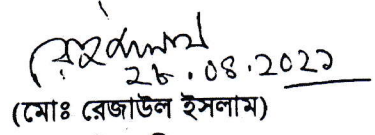 ২৮.০৪.২০২১
(মোঃ রেজাউল ইসলাম)